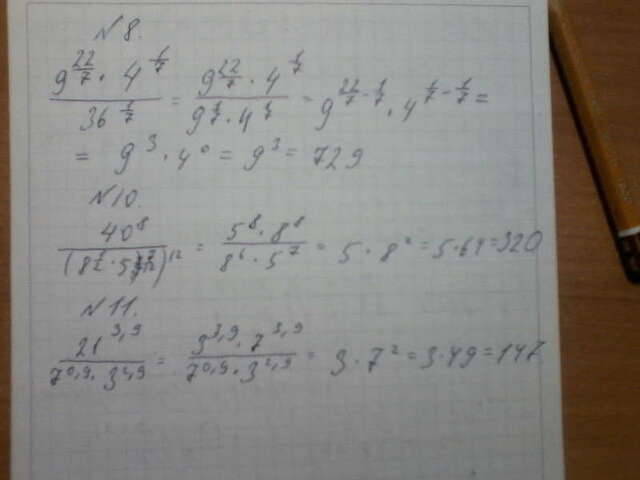 №8.
9^(22/7) · 4^(1/7) / 36^(1/7) = 9^(22/7) · 4^(1/7) / 9^(1/7) · 4^(1/7) = 9^(22/7 - 1/7) · 4^(1/7 - 1/7) =
= 9^3 · 4^0 = 9^3 = 729
№10.
40^8 / (8^(1/2) · 5^(7/12))^12 = 5^8 · 8^8 / 8^6 · 5^7 = 5 · 8^2 = 5·64 = 320
№11.
21^3,9 / 7^0,9 · 3^2,9 = 3^3,9 · 7^3,9 / 7^0,9 · 3^2,9 = 3 · 7^2 = 3·49 = 147